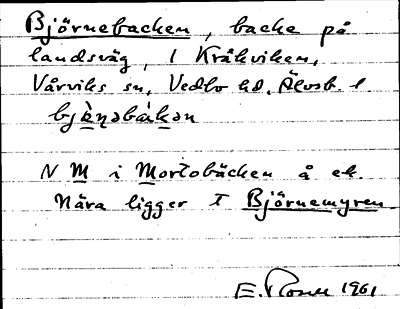 Björnebacken, backe på
landsväg, 1 Kråkviken,
Vårviks sn, Vedbo hd, Älvsb. l.
N M i Mortobäcken å ek.
Nära ligger T Björnemyren.
E. 1961